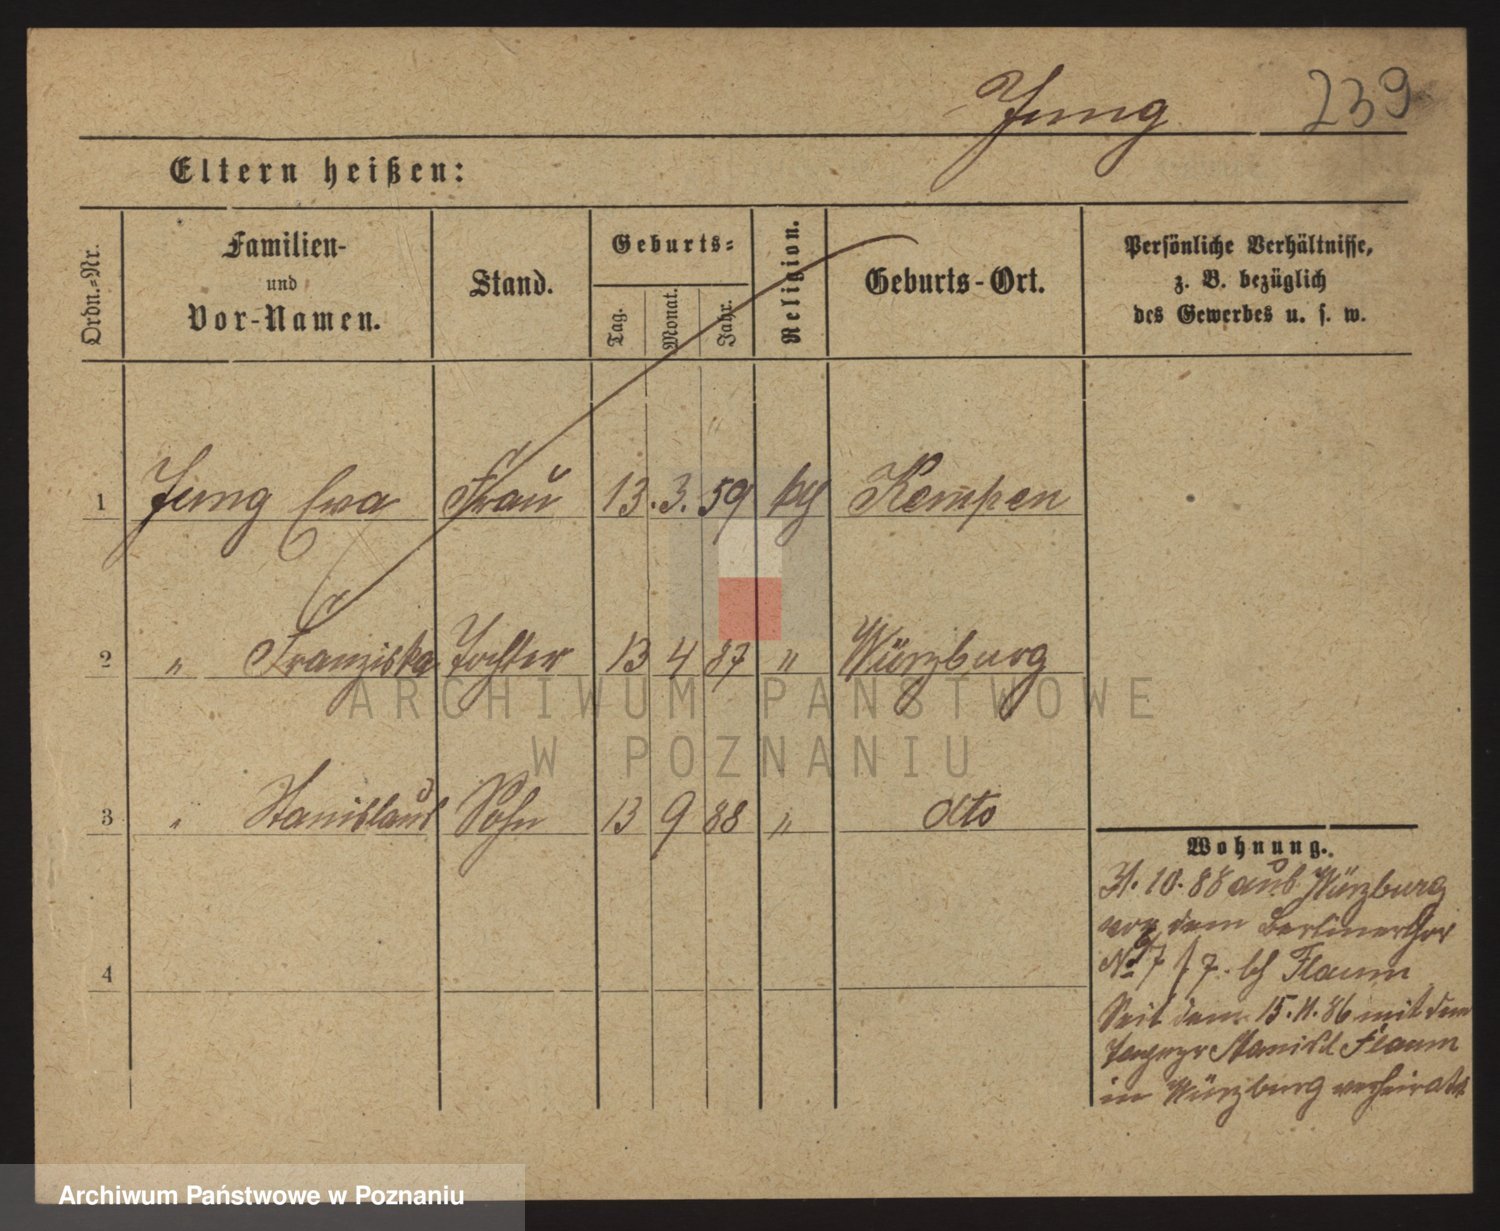 Jung 239
Eltern heißen:
Ordn.-Nr.
Familien-
und
Vor-Namen.
Stand.
Geburts-
Tag.
Monat.
Jahr.
Religion.
Geburts-Ort.
Persönliche Verhältnisse,
z. B. bezüglich
des Gewerbes u. s. w.
1 Jung Eva Frau 13. 3. 59 kth Kempen
2 " Franziska Tochter 13 4 87 " Würzburg
3 " Stanislaus Sohn 13 9 88 " dto
4
Wohnung.
10. 88 aus Würzburg
vor dem Berlinerthor
No 7 bei Flaum
Seit dem 15. 11. 86 mit dem
Flaum
in Würzburg verheirathet
ARCHIWUM PAŃSTWOWE
W POZNANIU
Archiwum Państwowe w Poznaniu